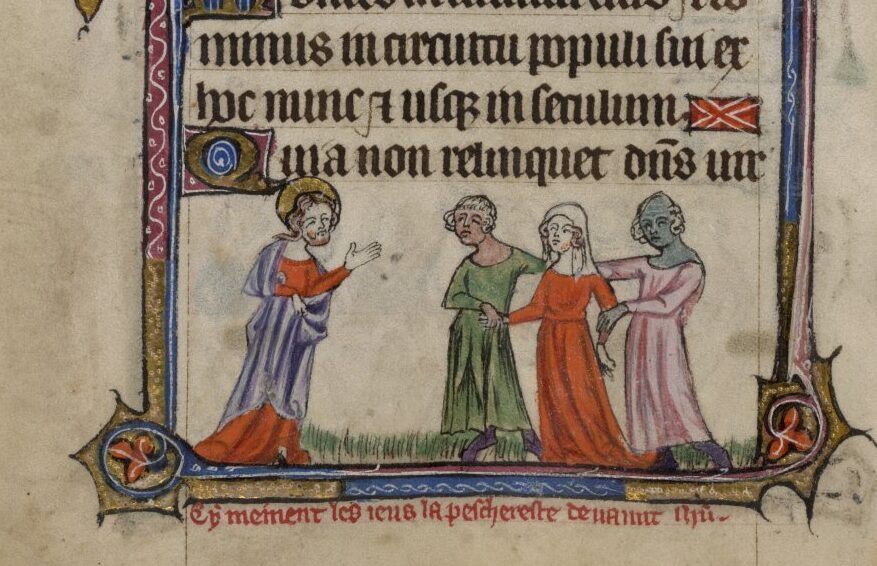 in circuitu eius & do
minus in circuitu populi sui ex
hoc nunc & usq; in seculum.
Quia non relinquet dn̄s uir
Cy meinent les ieus la pescheresse deuaunt ihū.